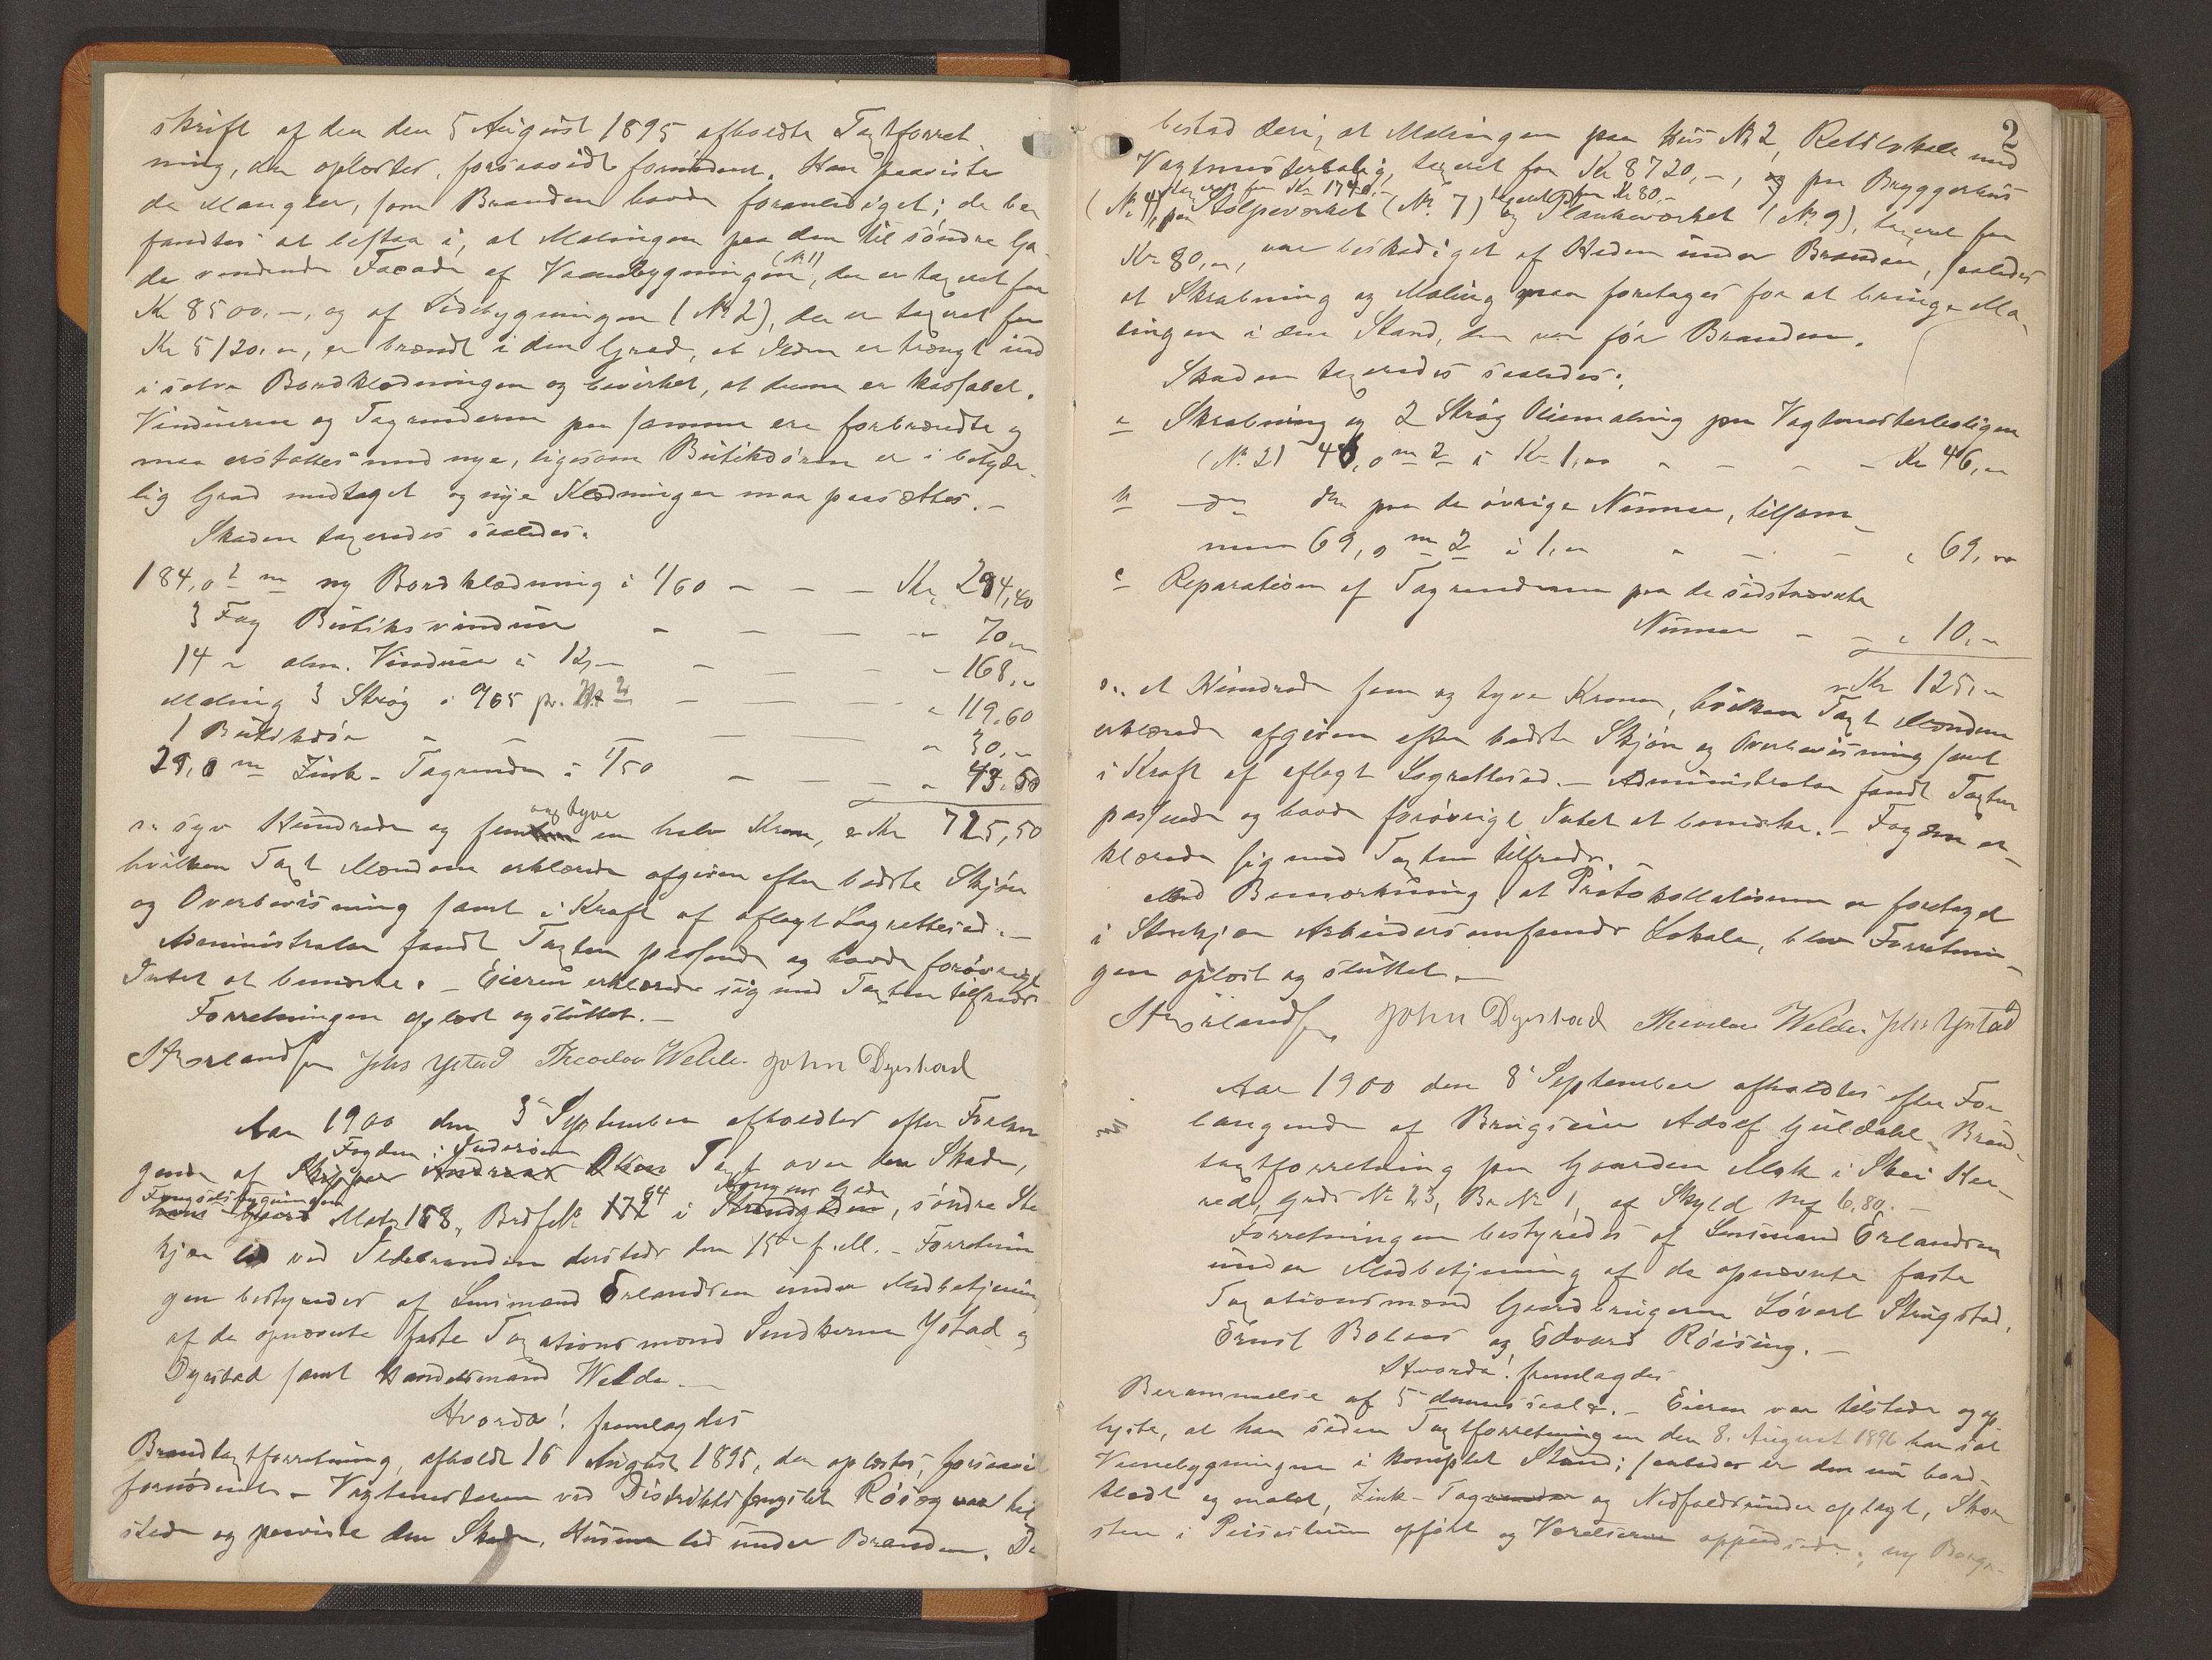 skrift af den den 5 August 1895 afholdte Taxtforret
ning, der oplæstes, forsaavidt fornødent. Han paaviste
de Mangler, som Branden havde foranlediget; de be
fandtes at bestaa i, at Malingen paa den til søndre Ga-
de vendende Facade af Vaanebygningen (№ 1), der er taxeret for
Kr 8500.-, og af Sidebygningen (№ 2), der er taxeret for
Kr 5120.-, er brændt i den Grad, at Ilden er trængt ind
i selve Bordklædningen og bevirket, at denne er kassabel.
Vinduerne og Tagrenderne paa samme ere forbrændte og
maa erstattes med nye, ligesom Butikdøren er i betyde-
lig Grad medtaget og nye Klædninger maa paasættes.-
Skaden taxeredes saaledes:
184,0 2 m ny Bordklædning à 1/60 - - - Kr. 294,40
3 Fag Butiksvinduer - - - - " 70,-
14 " alm. Vinduer à 12,- - - - " 168,-
Maling 3 Strøg à 0/65 pr. - - - " 119,60
1 Butikdør - - - - - " 30,-
29,0 m Zink-Tagrender à 1/50 - - - " 43,50
er syv Hundrede og fem og tyve en halv Krone, er Kr 725,50
hvilken Taxt Mændene erklærede afgiven efter bedste Skjøn
og Overbevisning samt i Kraft af aflagt Lagrettesed.-
Administrator fandt Taxten passende og havde forøvrigt
Intet at bemærke. - Eieren erklærede sig med Taxten tilfreds
Forretningen oplæst og sluttet.-
St Ørlandsen Johs Ystad Theodor Welde. John Dyrstad
Aar 1900 den 3' September afholdtes efter Forlan
gende af Fogden i Inderøen Taxt over den Skade,
Fængselsbygningen Matr 168, Brdfo№ 64 i Kongens Gade, søndre Ste
kjær led ved Ildebranden dersteds den 15de f. M. - Forretnin
gen bestyredes af Lensmand Ørlandsen under Medbetjening
af de opnævnte faste Taxationsmænd Snedkerne Ystad og
Dyrstad samt Handelsmand Welde.-
Hvorda! fremlagdes
Brandtaxtforretning, afholdt 16 August 1895, der oplæstes, forsaavi
fornødent.- Vagtmesteren ved Distriktsfængslet Røiseg var til
stede og paaviste den Skade, Husene led under Branden. De
2
bestod deri, at Malingen paa Hus № 2, Retslokale med
Vagtmesterbolig, taxeret for Kr 8720,-, og paa Bryggerhus
(№ 4), taxeret for Kr 1740.- paa Stolpeværket (№ 7) taxeret for Kr 80.- og Plankeværket (№ 9), taxeret for
Kr 80,-, var beskadiget af Heden under Branden, saaledes
at Skrabning og Maling maa foretages for at bringe Ma-
lingen i den Stand, den var før Branden.
Skaden taxeredes saaledes:
a Skrabning og 2 Strøg Oliemaling paa Vagtmesterboligen
(№ 2) 46,0 m 2 à Kr 1,00 - - - - Kr 46,-
b do do paa de øvrige Numre, tilsam-
men 69,0 m 2 à 1,- - - - " 69,00
c Reparation af Tagrenderne paa de sidstnævnte
Numre - - " 10,-
er Kr 125,-
er et Hundrede fem og tyve Kroner, hvilken Taxt Mændene
erklærede afgiven efter bedste Skjøn og Overbevisning samt
i Kraft af aflagt Lagrettesed.- Administrator fandt Taxten
passende og havde forøvrigt Intet at bemærke.- Fogden er-
klærede sig med Taxten tilfreds.-
Med Bemærkning, at Protokollationen er foretaget
i Stenkjær Arbeidersamfunds Lokale, blev Forretnin-
gen oplæst og sluttet.-
St Ørlandsen John Dyrstad Theodor Welde. Johs Ystad
Aar 1900 den 8' September afholdtes efter For-
langende af Brugseier Adolf Guldahl Brand-
taxtforretning paa Gaarden Mok i Skei Her-
red, Grds № 23, Br № 1, af Skyld Mf 6,80.-
Forretningen bestyredes af Lensmand Ørlandsen
under Medbetjening af de opnævnte faste
Taxationsmænd Gaardbrugerne Lövert Strugstad,
Ernst Bolaas og Edvard Röising.-
Hvorda! fremlagdes
Berammelse af 5 dennes saal.- Eieren var tilstede og op
lyste, at han siden Taxtforretningen den 8. August 1896 har sat
Vaanebygningen i komplet Stand; saaledes er den nu bord-
klædt og malet, Zink-Tag og Nedfaldsrender oplagt, Skor
sten i Peisestuen opført og Værelserne oppudsede; ny Borge-